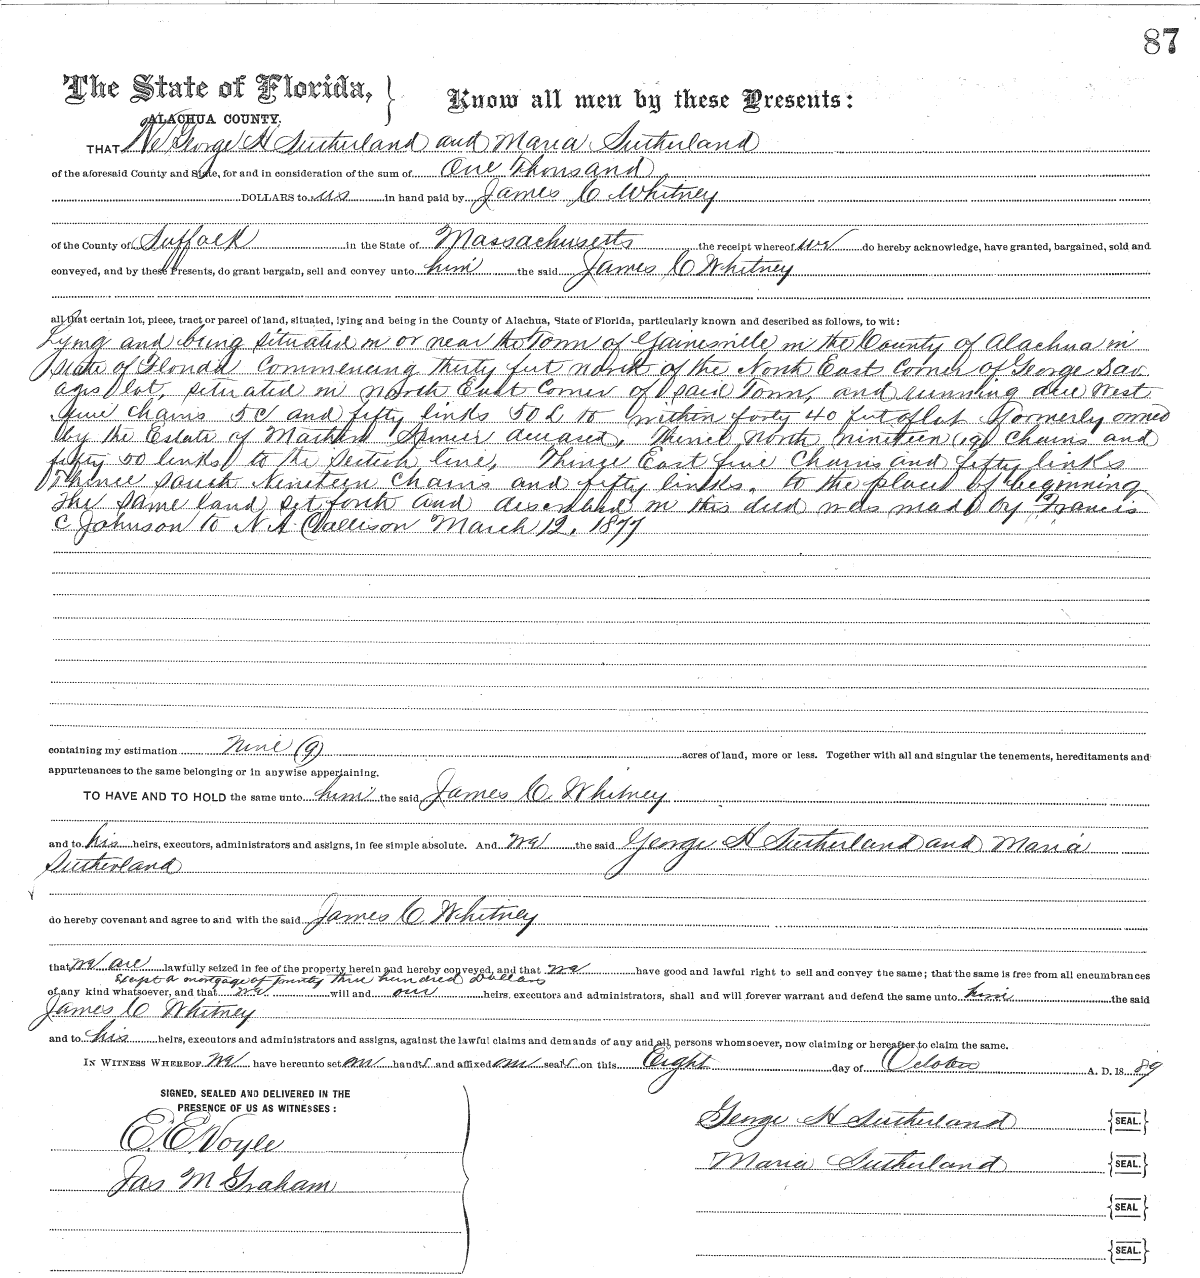 87
The State of Florida, } Know all men by these Presents:
ALACHUA COUNTY.
THAT We George H Sutherland and Maria Sutherland
of the aforesaid County and State, for and in consideration of the sum of One Thousand
DOLLARS to us in hand paid by James C Whitney
of the County of Suffolk in the State of Massachusetts the receipt whereof we do hereby acknowledge, have granted, bargained, sold and
conveyed, and by these Presents, do grant bargain, sell and convey unto him the said James C Whitney
all that certain lot, piece, tract or parcel of land, situated, lying and being in the County of Alachua, State of Florida, particularly known and described as follows, to wit:
Lying and being situated in or near the Town of Gainesville in the County of Alachua in
State of Florida Commencing thirty feet north of the North East Corner of George Sav
ages lot, situated in North East Corner of said Town, and running due West
five chains 5 C and fifty links 50 L to within forty 40 feet of lot formerly owned
by the Estate of deceased, thence North nineteen (19) Chains and
fifty 50 links to the section line, Thence East five Chains and fifty links
Thence South Nineteen Chains and fifty links, to the place of beginning
The same land set forth and described in this deed was made by Francis
C Johnson to N A Callison March 12, 1877
containing my estimation Nine (9) acres of land, more or less. Together with all and singular the tenements, hereditaments and
appurtenances to the same belonging or in anywise appertaining.
TO HAVE AND TO HOLD the same unto him the said James C Whitney
and to his heirs, executors, administrators and assigns, in fee simple absolute. And we the said George H Sutherland and Maria
Sutherland
do hereby covenant and agree to and with the said James C Whitney
that we are lawfully seized in fee of the property herein and hereby conveyed, and that we have good and lawful right to sell and convey the same; that the same is free from all encumbrances
Except a mortgage of hundred Dollars
of any kind whatsoever, and that we will and our heirs, executors and administrators, shall and will forever warrant and defend the same unto him the said
James C Whitney
and to his heirs, executors and administrators and assigns, against the lawful claims and demands of any and all persons whomsoever, now claiming or hereafter to claim the same.
IN WITNESS WHEREOF we have hereunto set our hands and affixed our seals on this Eight day of October A. D. 18 89
SIGNED, SEALED AND DELIVERED IN THE
PRESENCE OF US AS WITNESSES:
E. E. Voyle
Jas M Graham
George H Sutherland {SEAL.}
Maria Sutherland {SEAL.}
{SEAL}
{SEAL.}